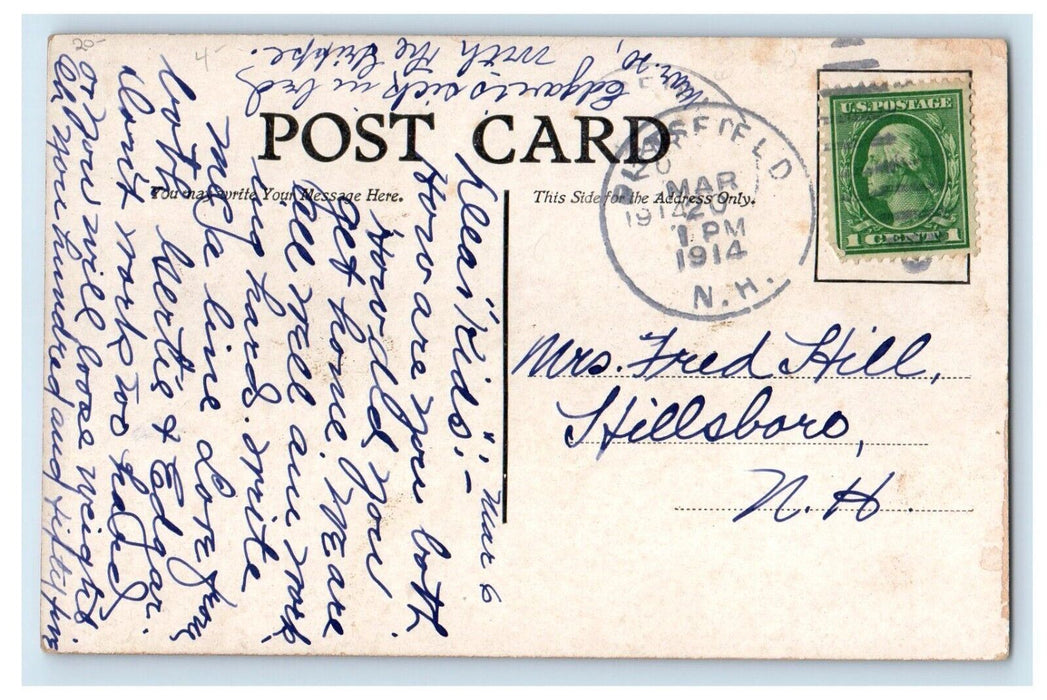 20-
4-
POST CARD
You may write Your Message Here.
This Side for the Address Only.
PEASEFIELD
MAR
20
1 PM
1914
N.H.
U.S. POSTAGE
1 CENT 1
Mrs. Fred Hill,
Hillsboro,
N. H.
Mar 6
Dear "Kids":-
How are you both
Would you
get home. We are
all well and work
ing hard. Write
me a line. Love from
both Gertie & Edgar.
Don't work too hard
or you will loose weight
Old you hundred and fifty
Edgar is sick in bed
with the Grippe.
Mar. 20,